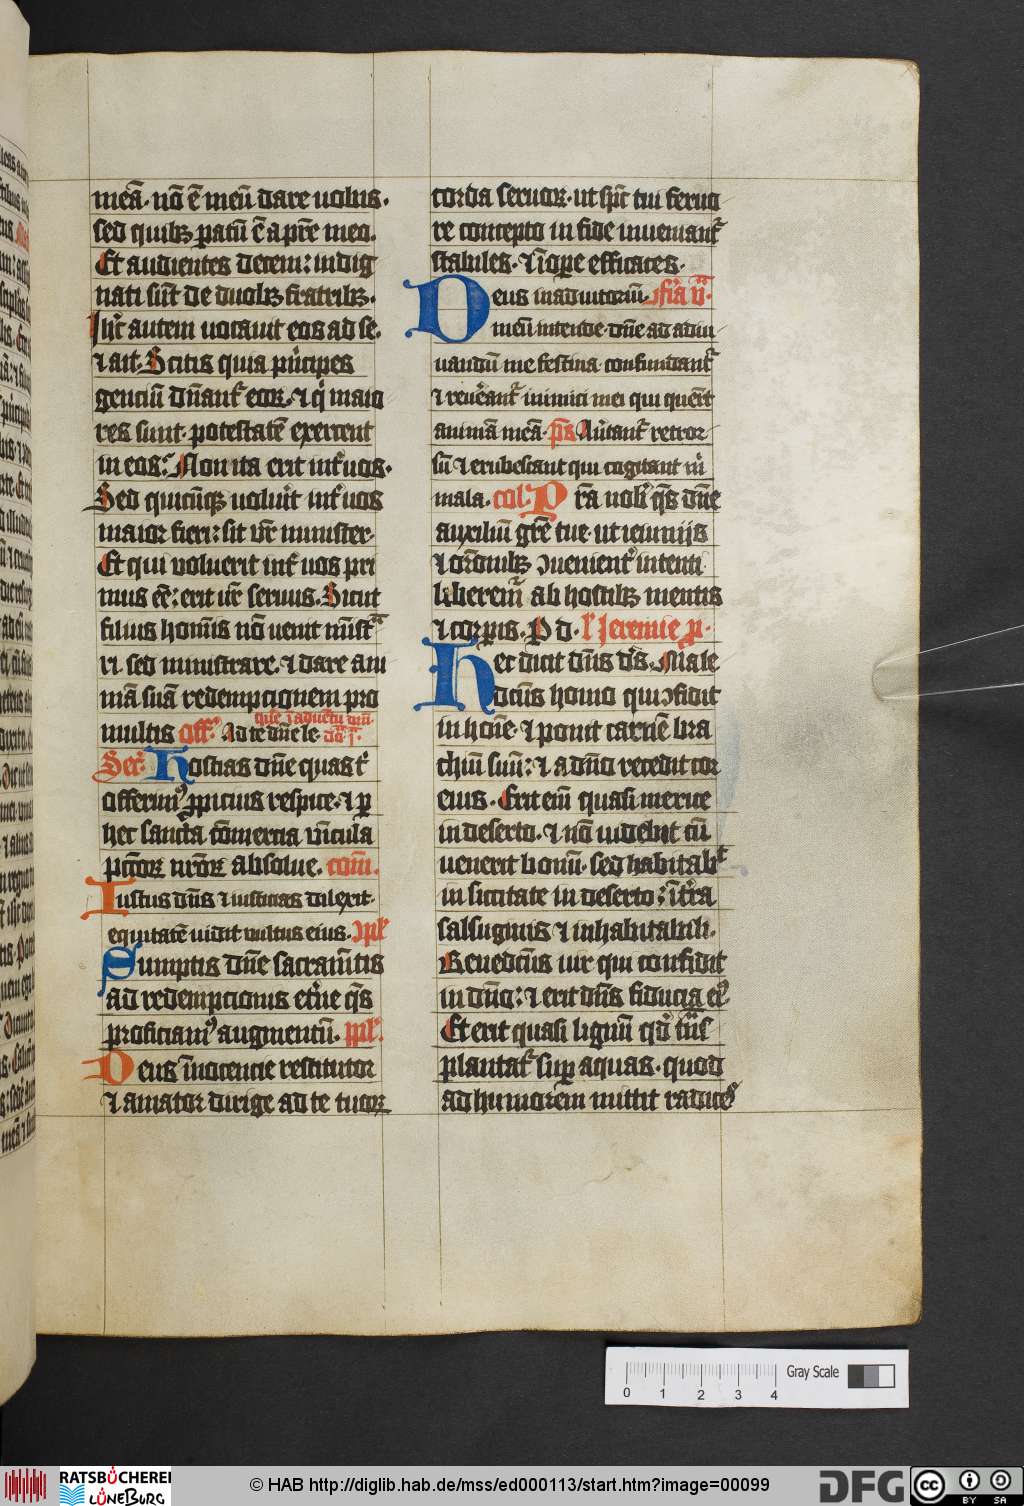 meā. nō ē meū dare uobis.
sed quibꝫ patū ē a pr̄e meo.
Et audientes decem: indig
nati sūt de duobꝫ fratribꝫ.
Ihc̄ autem uocauit eos ad se.
ꝛ ait. Scitis quia pn̄cipes
genciū dn̄ant᷑ eoꝝ. ꝛ q̇ maio
res sunt. potestatē exercent
in eos. Non ita erit int᷑ uos.
Sed quicūqꝫ uoluīt int᷑ uos
maior fieri: sit ur̄ minister.
Et qui voluerit int᷑ uos pri
mus eē: erit ur̄ seruus. Sicut
filius homīs nō uenit mīst᷑
ri. sed ministrare. ꝛ dare ani
mā suā redempcionem pro
multis off. Ad te dn̄e le.
que ī aduētu dnī.
dn̄ica j.
Secͬ. Hostias dn̄e quas t᷑
offerimꝰ ꝓpicius respice. ꝛ ꝑ
hec sancta cōmercia vīcula
pctōꝝ nr̄oꝝ absolue. com̄.
Iustus dn̄s ꝛ iusticias dilexit.
equitatē uidit uultus eius. ꝯpl᷑
Sumptis dn̄e sacramētis
ad redempcionis et̄ne q̄s
proficiamꝰ augmentū. ppl᷑.
Deus īnocencie restitutor
ꝛ amator dirige ad te tuoꝝ
corda seruoꝝ. ut sp̄c tui feruo
re concepto in fide inueniant᷑
stabiles. ꝛ ī oꝑe efficaces.
Deus in adiutoriū. fīa v̄.
meū intende dn̄e ad adiu
uandū me festina confundant᷑
ꝛ reuēant᷑ inimici mei qui querūt
animā meā. p̄s Aūtant᷑ retror
sū ꝛ erubescant qui cogitant m̄
mala. col. Pr̄a nob̄ q̄s dn̄e
auxiliū gr̄e tue. ut ieiunijs
ꝛ or̄onibꝫ ꝯuenient᷑ intenti
liberem᷑ ab hostibꝫ mentis
ꝛ corꝑis. P d. l᷑ Jeremie ꝓ.
Hec dicit dn̄s ds̄. Male
dcūs homo qui ꝯfidit
in hoīe. ꝛ ponit carnē bra
chiū suū: ꝛ a dn̄o recedit cor
eius. Erit em̄ quasi mirice
in deserto. ꝛ nō uidebit cū
uenerit bonū. sed habitab᷑
in siccitate in deserto: ī t̄ra
salsuginis ꝛ inhabitabili.
Benedcūs uir qui confidit
in dn̄o: ꝛ erit dn̄s fiducia eꝰ
Et erit quasi lignū qd̄ t̄nsꝰ
plantat᷑ suꝑ aquas. quod
ad humorem mittit radices
0 1 2 3 4
Gray Scale
RATSBÜCHEREI
LÜNEBURG
© HAB http://diglib.hab.de/mss/ed000113/start.htm?image=00099
DFG
cc BY SA